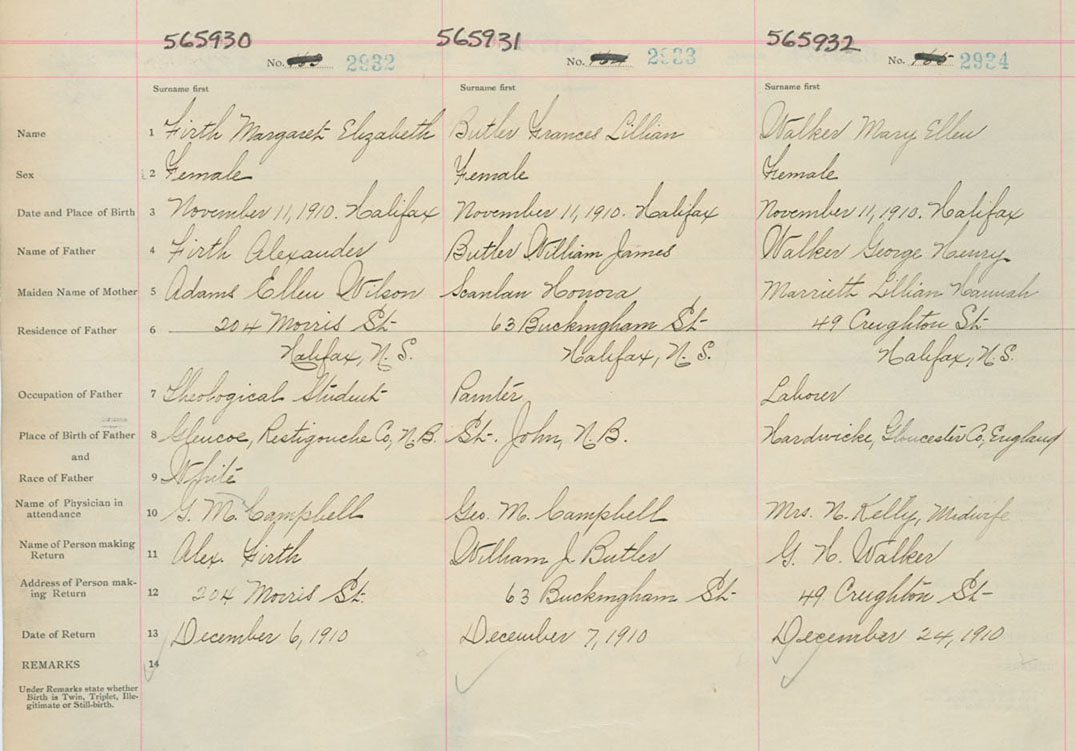 565930 565931 565932
No. 2932 No. 2933 No. 2934
Surname first Surname first Surname first
Name 1 Firth Margaret Elizabeth Butler Frances Lillian Walker Mary Ellen
Sex 2 Female Female Female
Date and Place of Birth 3 November 11, 1910. Halifax November 11, 1910. Halifax November 11, 1910. Halifax
Name of Father 4 Firth Alexander Butler William James Walker George Henry
Maiden Name of Mother 5 Adams Ellen Wilson Scanlan Honora Marrieth Lillian Hannah
Residence of Father 6 204 Morris St- 63 Buckingham St- 49 Creighton St-
Halifax, N.S. Halifax, N.S. Halifax, N.S.
Occupation of Father 7 Theological Student Painter Laborer
Place of Birth of Father 8 Glencoe, Restigouche Co, N.B. St. John, N.B. Hardwicke, Gloucester Co, England
and
Race of Father 9 White
Name of Physician in
attendance 10 G. M. Campbell Geo. M. Campbell Mrs. N. Kelly, Midwife
Name of Person making
Return 11 Alex. Firth William J. Butler G. H. Walker
Address of Person mak-
ing Return 12 204 Morris St. 63 Buckingham St- 49 Creighton St-
Date of Return 13 December 6, 1910 December 7, 1910 December 24, 1910
REMARKS 14
Under Remarks state whether
Birth is Twin, Triplet, Ille-
gitimate or Still-birth.